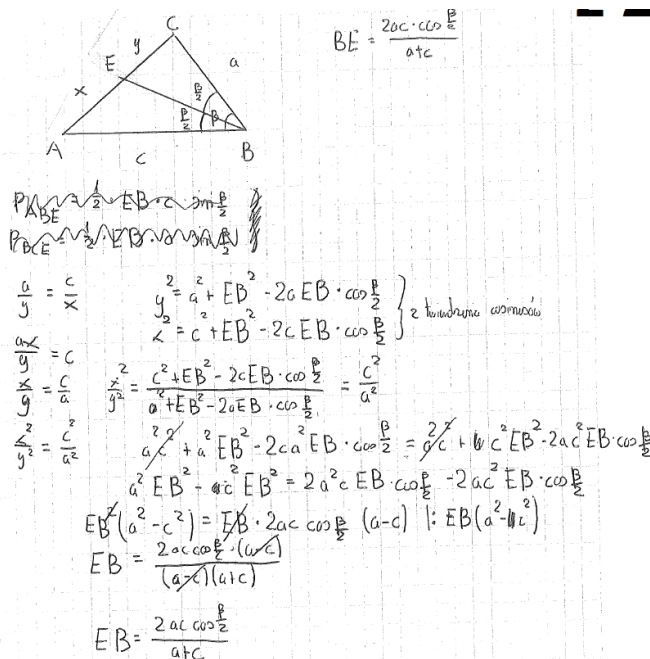 C
y
E
a
x
β/2
β/2 β
A B
c
BE = 2ac·cos β/2 / a+c
P_ABE = 1/2 · EB · c · sin β/2
P_BCE = 1/2 · EB · a · sin β/2
a/y = c/x
y² = a² + EB² - 2aEB · cos β/2
x² = c² + EB² - 2cEB · cos β/2 } z twierdzenia cosinusów
ax/y = c
x/y = c/a
x²/y² = c² + EB² - 2cEB · cos β/2 / a² + EB² - 2aEB · cos β/2 = c²/a²
x²/y² = c²/a²
a²c² + a²EB² - 2ca²EB · cos β/2 = a²c² + c²EB² - 2ac²EB · cos β/2
a²EB² - c²EB² = 2a²cEB · cos β/2 - 2ac²EB · cos β/2
EB²(a² - c²) = EB · 2ac cos β/2 (a-c) |: EB(a² - c²)
EB = 2ac cos β/2 · (a-c) / (a-c)(a+c)
EB = 2ac cos β/2 / a+c